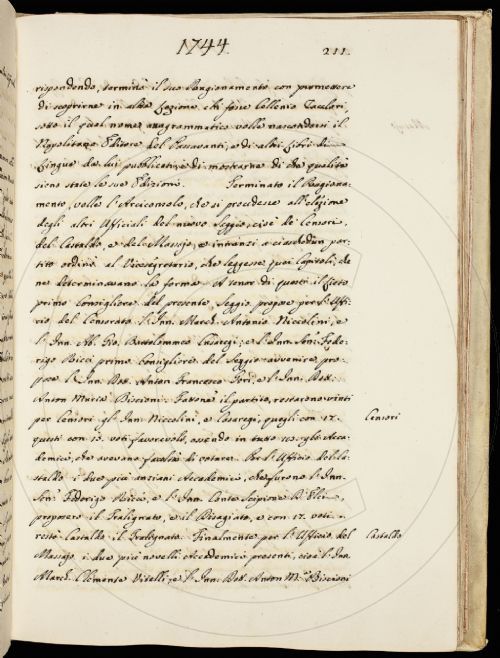 1744.
211.
rispondendo, terminò il suo Ragionamento con promettere
di scoprirne in altra Lezione chi fosse Cellenio Zacclori,
sotto il qual nome anagrammatico volle nascondersi il
Napolitano Editore del Passavanti, e di altri Libri di
Lingua da lui pubblicati, e di mostrarne di che qualità
sieno state le sue Edizioni. Terminato il Ragiona-
mento, volle l'Arciconsolo, che si procedesse all'elezione
degli altri Ufficiali del nuovo Seggio, cioè de Censori,
del Castaldo, e del Massajo, e innanzi a ciaschedun par-
tito ordinò al Vicesegretario, che leggesse quei Capitoli, che
ne determinavano la forma. A tenor di questi il
primo Consigliere del presente Seggio propose per l'Uffi-
cio del Censorato l'Inn. March. Antonio Niccolini, e
l'Inn. Ab. Gio. Bartolommeo Casaregi, e l'Inn. Sen. Fede-
rigo Ricci primo Consigliere del Seggio avvenire pro-
pose l'Inn. Dott. Anton Francesco Gori, e l'Inn. Dott.
Anton Maria Biscioni. Fattone il partito, restarono vinti
per Censori gl'Inn. Niccolini, e Casaregi, quegli con 17.
questi con 13. voti favorevoli, essendo in tutto gli Acca-
demici, che avevano facoltà di votare. Per l'Ufficio del Ca-
staldo i due più anziani Accademici, che furono l'Inn.
Sen. Federigo Ricci, e l'Inn. Conte Scipione
proposero il Tralignato, e il Bisagiato, e con 17. voti
restò Castaldo il Tralignato. Finalmente per l'Ufficio del
Massajo i due più novelli Accademici presenti, cioè l'Inn.
March. Clemente Vitelli, e l'Inn. Dott. Anton M.ª Biscioni
Censori
Castaldo